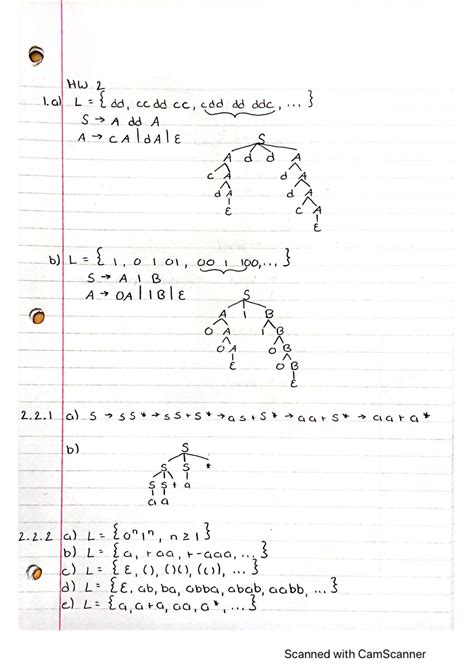 HW 2
1.a) L = { dd, cc dd cc, cdd dd ddc, ... }
S → A dd A
A → cA | dA | ε
S
A d d A
c A d A
d A d A
ε c A
ε
b) L = { 1, 0 1 01, 00 1 100, ... }
S → A 1 B
A → 0A | 1B | ε
S
A 1 B
0 A 1 B
0 A 0 B
ε 0 B
ε
2.2.1 a) S → SS* → SS+S* → aS+S* → aa+S* → aa+a*
b)
S
S S *
S S + a
a a
2.2.2 a) L = {0ⁿ1ⁿ, n ≥ 1}
b) L = {a, +aa, +-aaa, ... }
c) L = {ε, (), ()(), (()), ... }
d) L = {ε, ab, ba, abba, abab, aabb, ... }
e) L = {a, a+a, aa, a*, ... }
Scanned with CamScanner